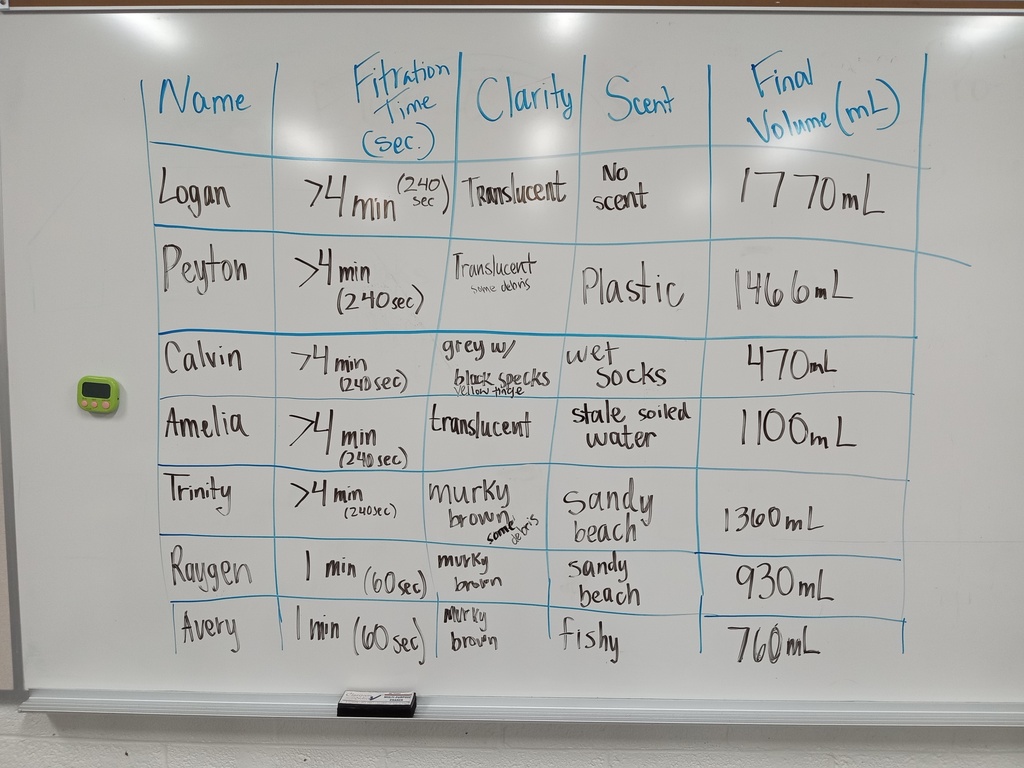 Name Fitration Time (sec.) Clarity Scent Final Volume (mL)
Logan >4 min (240 sec) Translucent No scent 1770mL
Peyton >4 min (240sec) Translucent some debris Plastic 1466mL
Calvin >4 min (240sec) grey w/ black specks yellow tinge wet socks 470mL
Amelia >4 min (240sec) translucent stale soiled water 1100mL
Trinity >4 min (240sec) murky brown some debris sandy beach 1360mL
Raygen 1 min (60sec) murky brown sandy beach 930mL
Avery 1min (60sec) Murky brown fishy 760mL